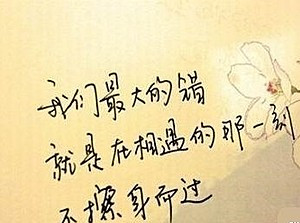 我们最大的错
就是在相遇的那一刻
不擦身而过